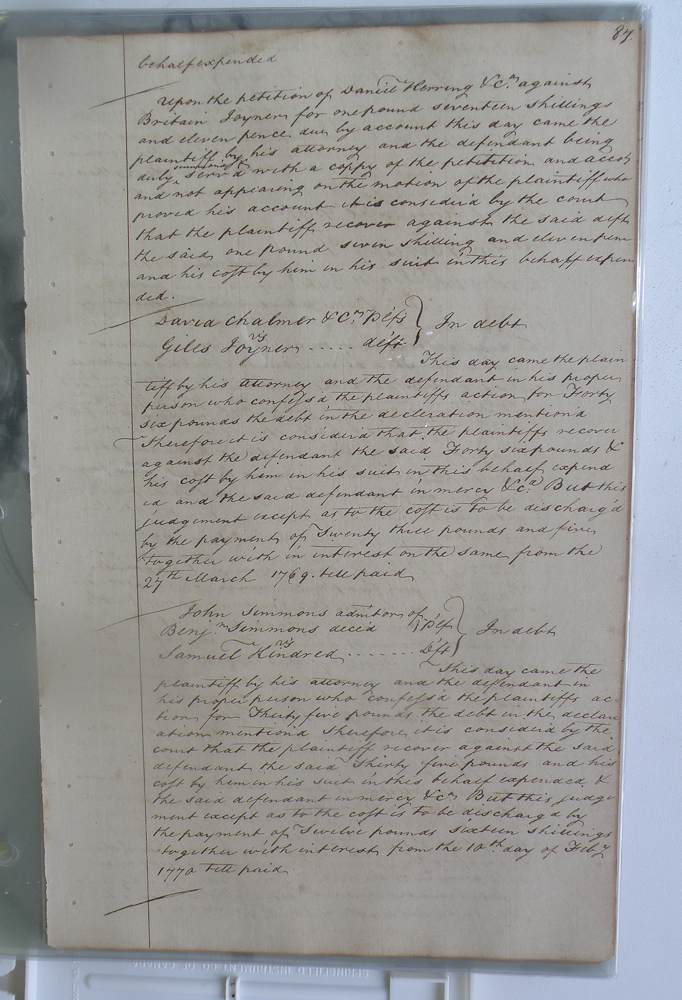 87.
behalf expended
Upon the petition of Daniel Herring &c.ª against
Britain Joyner for one pound seventeen shillings
and eleven pence due by account this day came the
plaintiff by his attorney and the defendant being
duly serv'd with a coppy of the petition and accot
and not appearing on the motion of the plaintiff who
proved his account it is considerd by the court
that the plaintiff recover against the said deft
the said one pound seven shilling and eleven pence
and his cost by him in his suit in this behalf expen
ded.
David Chalmer & Cº Plfs
vs
Giles Joyner ..... deft
In debt
This day came the plain
tiff by his attorney and the defendant in his proper
person who confess'd the plaintiffs action for Forty
six pounds the debt in the declaration mention'd
Therefore it is considerd that the plaintiffs recover
against the defendant the said Forty six pounds &
his cost by him in his suit in this behalf expend
ed and the said defendant in mercy &c.ª But this
judgement except as to the cost is to be discharg'd
by the payment of Twenty three pounds and five
together with in interest on the same from the
27th March 1769. till paid
John Simmons admitor of
Benj.ª Simmons decēd Plf
vs
Samuel Kindred ....... Deft
In debt
This day came the
plaintiff by his attorney and the defendant in
his proper person who confess'd the plaintiffs ac
tion for Thirty five pounds the debt in the declar
ation mention'd Therefore it is considerd by the
court that the plaintiff recover against the said
defendant the said Thirty five pounds and his
cost by him in his suit in this behalf expended &
the said defendant in mercy &c.ª But this judge
ment except as to the cost is to be discharg'd by
the payment of Twelve pounds sixteen shillings
together with interest from the 10th day of Feby
1770 till paid